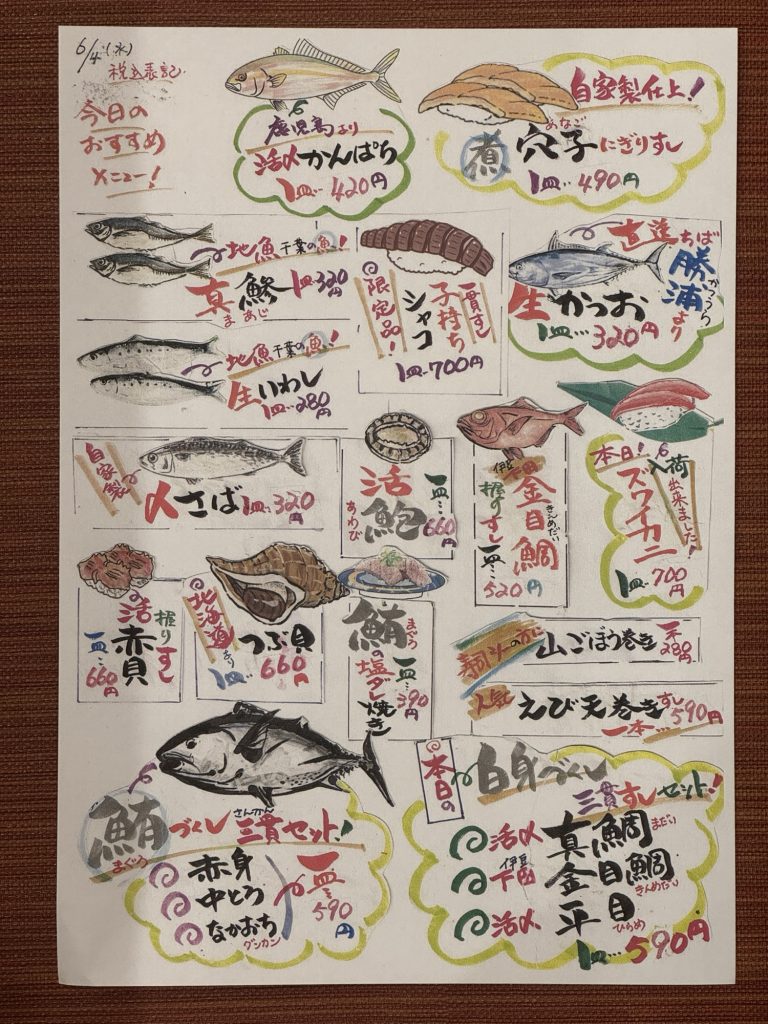 6/4(水)
税込表記
今日の
おすすめ
メニュー!
鹿児島より
活〆かんぱち
1皿…420円
自家製仕上!
煮
あなご
穴子にぎりすし
1皿…490円
地魚千葉の魚!
真鯵
まあじ
1皿330円
限定品!
一貫すし
子持ち
シャコ
1皿…700円
直送ちば
勝浦より
かつうら
生かつお
1皿…320円
地魚千葉の魚!
生いわし
1皿…280円
自家製
〆さば 1皿…320円
活鮑
あわび
一皿…660円
伊豆下田
金目鯛
きんめだい
握りすし
一皿…520円
本日!
入荷
出来ました!
ズワイカニ
1皿…700円
の活赤貝
握りすし
一皿…660円
北海道より
つぶ貝
1皿…660円
鮪の塩ダレ焼き
まぐろ
一皿…390円
山ごぼう巻き
一本280円
人気
えび天巻きすし
一本…590円
鮪づくし三貫セット!
まぐろ
さんかん
赤身
中とろ
なかおち
グンカン
一皿…590円
本日の
白身づくし
三貫すしセット!
活〆 真鯛 まだい
伊豆下田 金目鯛 きんめだい
活〆 平目 ひらめ
1皿…590円